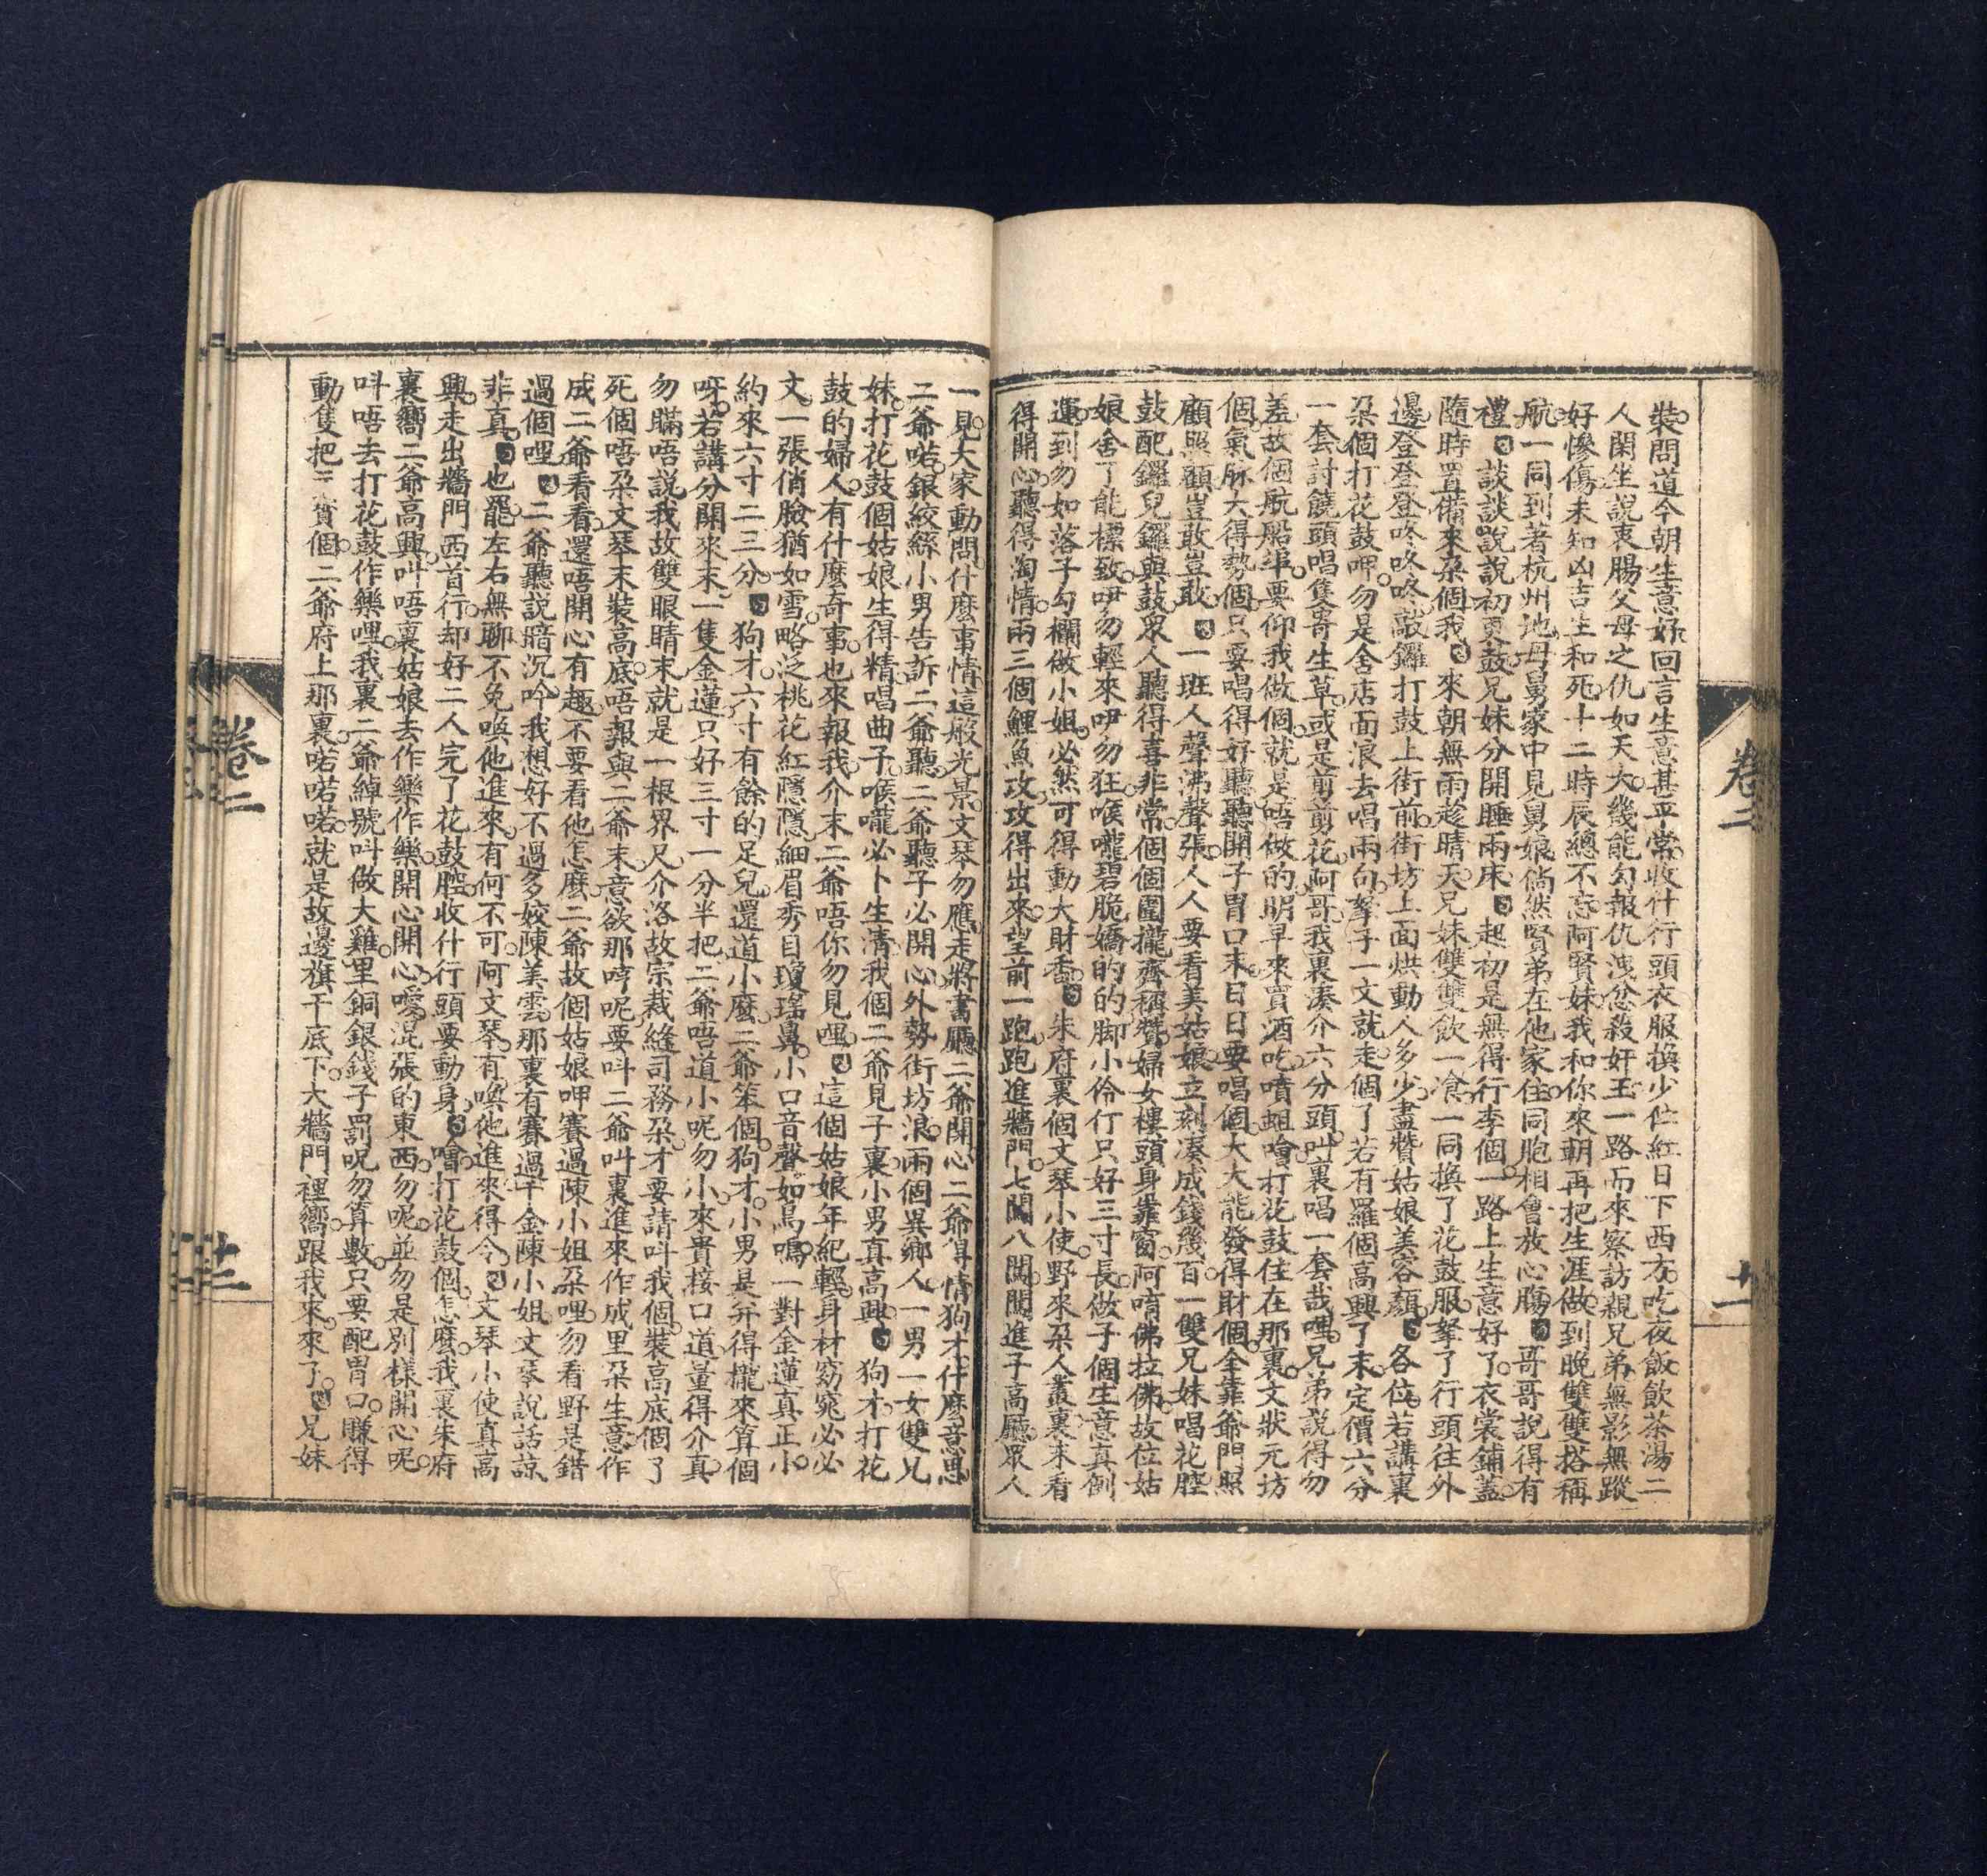 卷二
十一
裝問道今朝生意好回言生意甚平常收什行頭衣服換少伫紅日下西方吃夜飯飲茶湯二
人閑坐說衷腸父母之仇如天大幾能勾報仇洩忿殺奸王一路而來察訪親兄弟無影無蹤
好慘傷未知凶吉生和死十二時辰總不忘阿賢妹我和你來朝再把生涯做到晚雙雙搭稱
航一同到著杭州地母舅家中見舅娘倘然賢弟在他家住同胞相會放心腸 哥哥說得有
禮 談談說說初更鼓兄妹分開睡兩床 起初是無得行李個一路上生意好了衣裳鋪蓋
隨時置備來朶個我 來朝無雨趁晴天兄妹雙雙飲一飡一同換了花鼓服拏了行頭往外
邊登登登咚咚咚敲鑼打鼓上街前街坊上面烘動人多少盡贊姑娘美容顏 各位若講裏
朶個打花鼓呷勿是舍店面浪去唱兩句拏子一文就走個了若有羅個高興了末定價六分
一套討饒頭唱隻寄生草或是剪剪花阿哥我裏湊介六分頭叫裏唱一套哉哩兄弟說得勿
羞故個航船埠要仰我做個就是唔做的明早來買酒吃嘖蛆噲打花鼓住在那裏文狀元坊
個氣脉大得勢個只要唱得好聽聽開子胃口末日日要唱個大大能發得財個全靠爺門照
顧照顧豈敢豈敢 一班人聲沸聲張人人要看美姑娘立刻湊成錢幾百一雙兄妹唱花腔
鼓配鑼兒鑼與鼓眾人聽得喜非常個個圍攏齊稱贊婦女樓頭身靠窗阿唷佛拉佛故位姑
娘舍了能標致吚勿輕來吚勿狂喉嚨碧脆嬌的的脚小伶仃只好三寸長做子個生意真倒
運到勿如落子勾欄做小姐必然可得動大財香 朱府裏個文琴小使野來朶人叢裏末看
得開心聽得淘情兩三個鯉魚攻攻得出來望前一跑跑進牆門七闖八闖闖進子高廳眾人
一見大家動問什麼事情這般光景文琴勿應走將書廳二爺開心二爺得情狗才什麼意思
二爺喏銀絞綹小男告訴二爺聽二爺聽子必開心外勢街坊浪兩個異鄉人一男一女雙兄
妹打花鼓個姑娘生得精唱曲子喉嚨必卜生清我個二爺見子裏小男真高興 狗才打花
鼓的婦人有什麼奇事也來報我介末二爺唔你勿見哩 這個姑娘年紀輕身材窈窕必必
文一張俏臉猶如雪略泛桃花紅隱隱細眉秀目瓊瑤鼻小口音聲如鳥鳴一對金蓮真正小
約來六寸二三分 狗才六寸有餘的足兒還道小麼二爺笨個狗才小男是弁得攏來算個
呀若講分開來末一隻金蓮只好三寸一分半把二爺唔道小呢勿小來貴接口道量得介真
勿瞞唔說我故雙眼睛末就是一根界尺介洛故宗裁縫司務朶才要請呌我個裝高底個了
死個唔朶文琴末裝高底唔報與二爺末意欲那哼呢要呌二爺叫裏進來作成里朶生意作
成二爺看看還唔開心有趣不要看他怎麼二爺故個姑娘呷賽過陳小姐朶哩勿看野是錯
過個哩 二爺聽說暗沉吟我想好不過多姣陳美雲那裏有賽過千金陳小姐文琴說話諒
非真 也罷左右無聊不免喚他進來有何不可阿文琴有喚他進來得令 文琴小使真高
興走出牆門西首行却好二人完了花鼓腔收什行頭要動身 噲打花鼓個怎麼我裏朱府
裏嚮二爺高興呌唔裏姑娘去作樂作樂開心開心噯混張的東西勿呢並勿是別樣開心呢
呌唔去打花鼓作樂哩我裏二爺綽號呌做大雞里銅銀錢子罰呪勿算數只要配胃口賺得
動隻把元寳個二爺府上那裏喏喏喏就是故邊旗干底下大牆門裡嚮跟我來來了 兄妹
卷二
十二